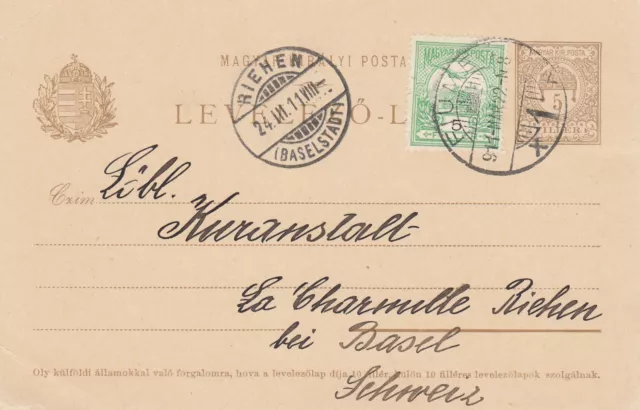 MAGYAR KIRÁLYI POSTA
LEVELEZŐ-LAP
RIEHEN
24.III.11.VIII
(BASELSTADT)
MAGYAR KIR. POSTA
5
MAGYAR KIR. POSTA
5
FILLÉR
Czim
Löbl.
Kuranstalt
La Charmille Riehen
bei Basel
Schweiz
Oly külföldi államokkal való forgalomra, hova a levelezőlap díja 10 fillér, külön 10 filléres levelezőlapok szolgálnak.